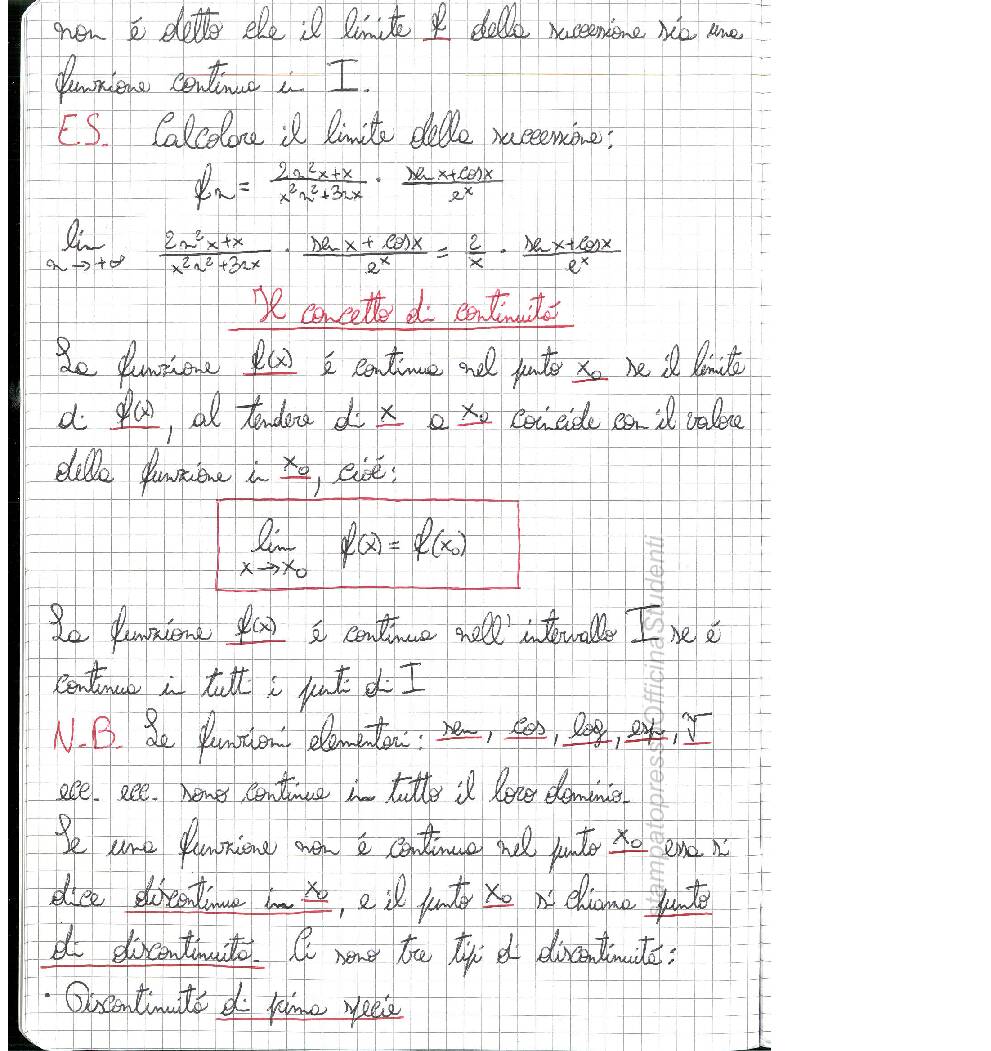 non é detto che il limite f della successione sia una
funzione continua in I.
E.S. Calcolare il limite della successione:
fn = 2n²x+x / x²n²+3nx · sen x+cosx / eˣ
lim n→+∞ 2n²x+x / x²n²+3nx · sen x + cosx / eˣ = 2/x · sen x+cosx / eˣ
Il concetto di continuitá
La funzione f(x) é continua nel punto x₀ se il limite
di f(x), al tendere di x a x₀ coincide con il valore
della funzione in x₀, cioé:
lim x→x₀ f(x) = f(x₀)
La funzione f(x) é continua nell'intervallo I se é
continua in tutti i punti di I
N.B. Le funzioni elementari: sen, cos, log, esp, √
ecc. ecc. sono continue in tutto il loro dominio.
Se una funzione non é continua nel punto x₀ essa si
dice discontinua in x₀, e il punto x₀ si chiama punto
di discontinuitá. Ci sono tre tipi di discontinuitá:
· Discontinuitá di prima specie
stampatopressoOfficinaStudenti